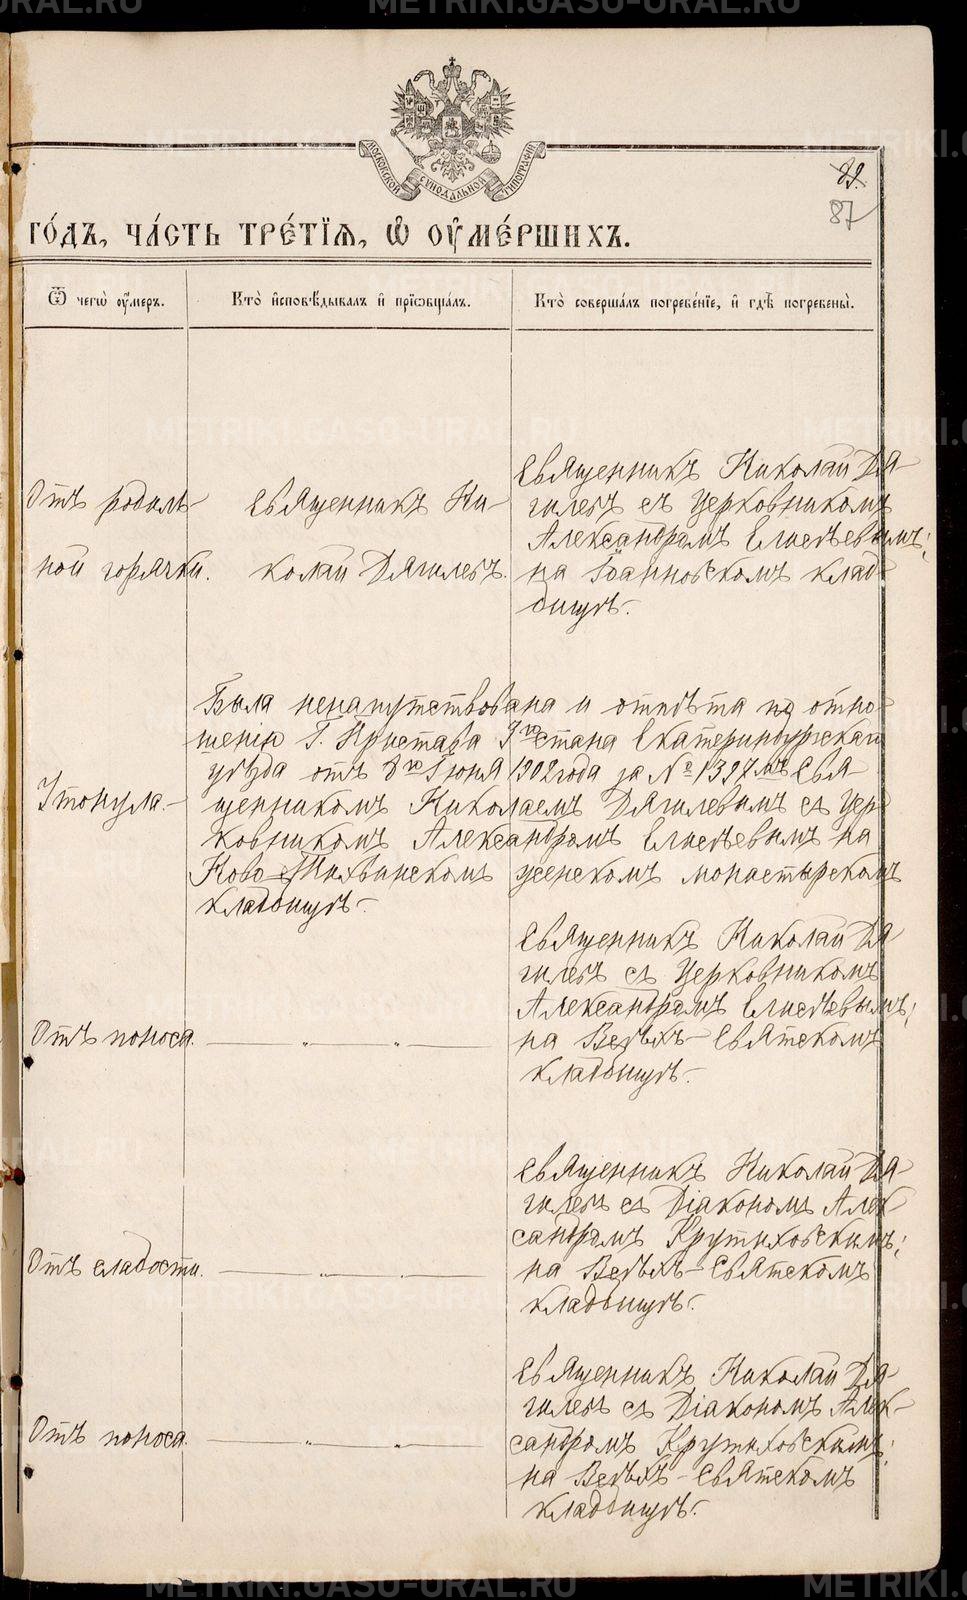 METRIKI.GASO-URAL.RU
МОСКОВСКОЙ СѴНОДАЛЬНОЙ ТИПОГРАФІИ
89.
87
ГО́ДЪ, ЧА́СТЬ ТРЕ́ТІѦ, Ѡ҆ ОУ҆МЕ́РШИХЪ.
Ѿ чегѡ̀ оу҆́меръ.
Кто̀ и҆сповѣ́дывалъ и҆ прїѻбща́лъ.
Кто̀ соверша́лъ погребе́нїе, и҆ гдѣ̀ погребены̀.
Отъ родиль-
ной горячки.
Священникъ Ни-
колай Дягилевъ.
Священникъ Николай Дя-
гилевъ съ церковникомъ
Александромъ Елисѣевымъ;
на Іоанновскомъ клад-
бищѣ.
Утонула.
Была ненапутствована и отпѣта по отно-
шенію Г. Пристава стана Екатеринбургскаго
уѣзда отъ 8го Іюня 1902 года за № 1397мъ Свя-
щенникомъ Николаемъ Дягилевымъ съ цер-
ковникомъ Александромъ Елисѣевымъ на
Ново-Тихвинскомъ женскомъ монастырскомъ
кладбищѣ.
Отъ поноса.
— „ — „ —
Священникъ Николай Дя-
гилевъ съ церковникомъ
Александромъ Елисѣевымъ;
на Всѣхъ-Святскомъ
кладбищѣ.
Отъ слабости.
— „ — „ —
Священникъ Николай Дя-
гилевъ съ Діакономъ Алек-
сандромъ Крутиховскимъ;
на Всѣхъ-Святскомъ
кладбищѣ.
Отъ поноса.
— „ — „ —
Священникъ Николай Дя-
гилевъ съ Діакономъ Алек-
сандромъ Крутиховскимъ;
на Всѣхъ-Святскомъ
кладбищѣ.